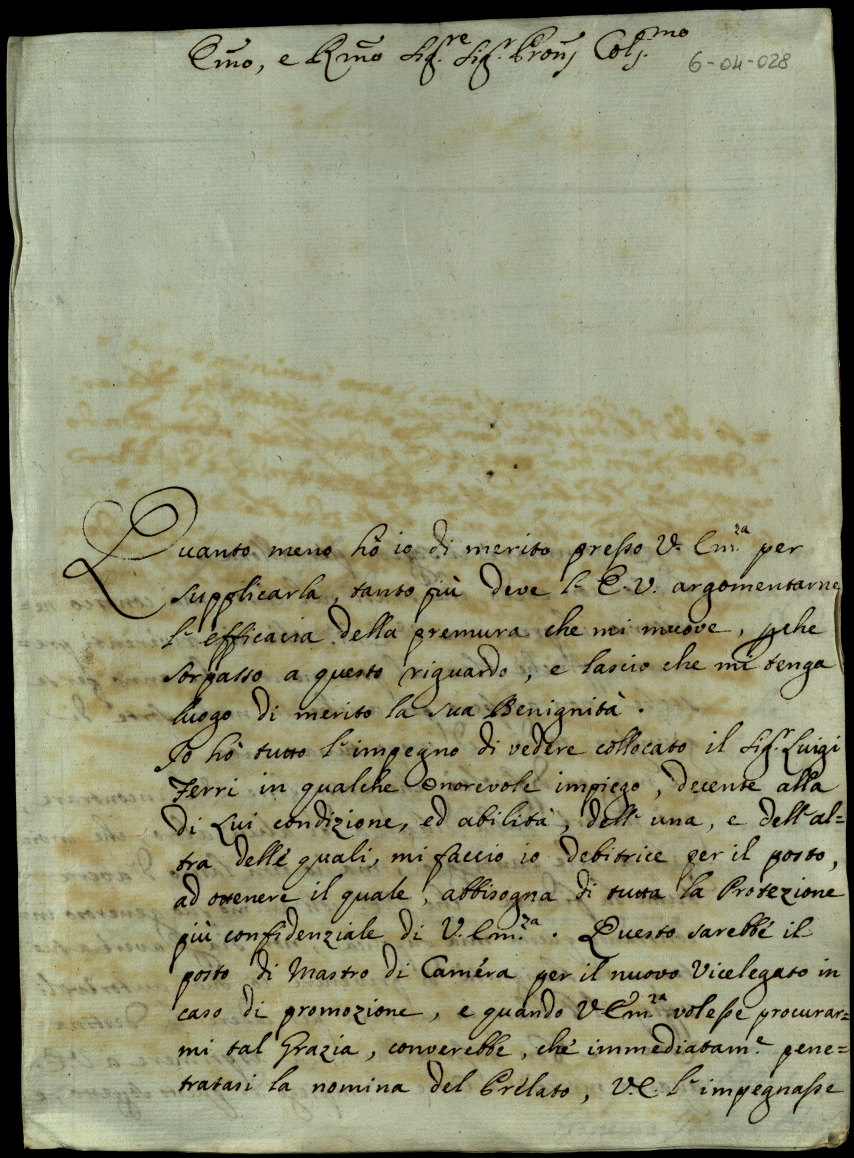 Em̃o, e Rm̃o Sig.re Sig.r Pron̄ Col.mo
6-04-028
Quanto meno hò io di merito presso V. Em.za per
supplicarla, tanto più deve l'E.V. argomentarne
l'efficacia della premura che mi muove, pche
sorpasso a questo riguardo, e lascio che mi tenga
luogo di merito la sua Benignità.
Io hò tutto l'impegno di vedere collocato il Sig.r Luigi
Ferri in qualche onorevole impiego, decente alla
di Lui condizione, ed abilità, dell'una, e dell'al=
tra delle quali, mi faccio io debitrice per il posto,
ad ottenere il quale, abbisogna di tutta la Protezione
più confidenziale di V. Em.za. Questo sarebbe il
posto di Mastro di Camera per il nuovo Vicelegato in
caso di promozione, e quando V Em.za volesse procurar=
mi tal Grazia, converebbe, che immediatam.e pene=
tratasi la nomina del Prelato, V.E. l'impegnasse